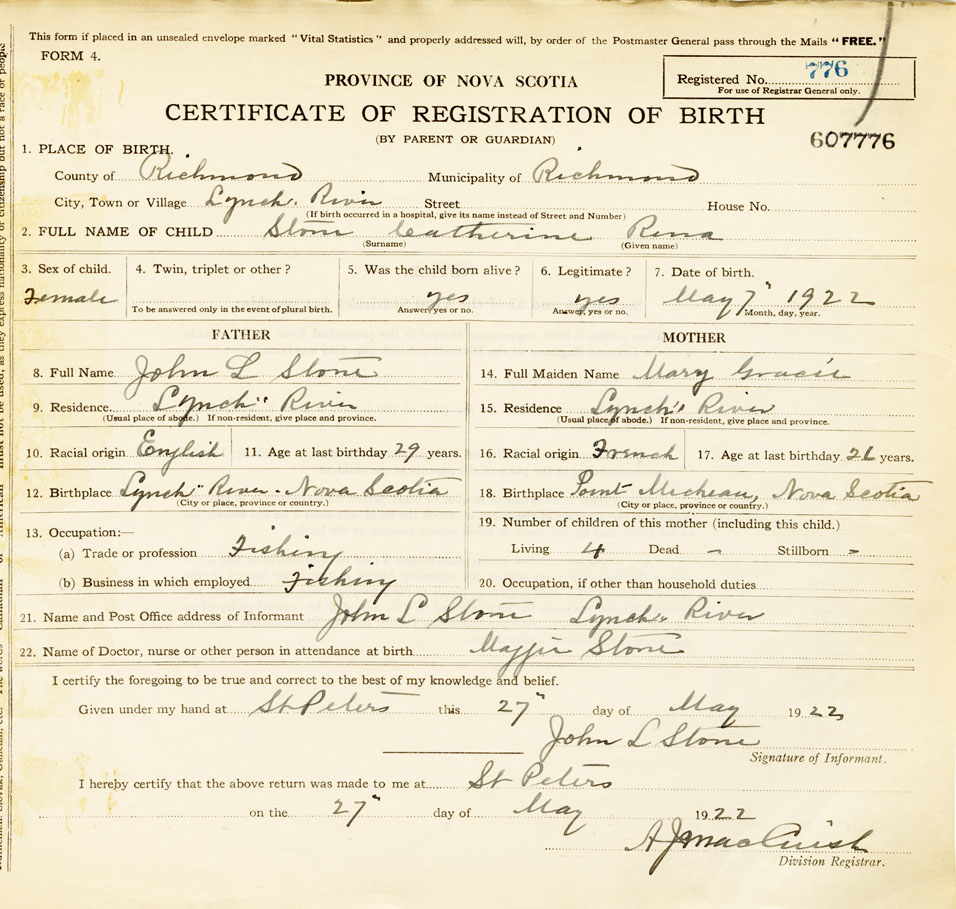 This form if placed in an unsealed envelope marked "Vital Statistics" and properly addressed will, by order of the Postmaster General pass through the Mails "FREE."
FORM 4.
PROVINCE OF NOVA SCOTIA
Registered No. 776
For use of Registrar General only.
CERTIFICATE OF REGISTRATION OF BIRTH
(BY PARENT OR GUARDIAN)
607776
1. PLACE OF BIRTH.
County of Richmond Municipality of Richmond
City, Town or Village Lynch's River Street House No.
(If birth occurred in a hospital, give its name instead of Street and Number)
2. FULL NAME OF CHILD Stone Catherine Rena
(Surname) (Given name)
3. Sex of child. 4. Twin, triplet or other? 5. Was the child born alive? 6. Legitimate? 7. Date of birth.
Female yes yes May 7" 1922
To be answered only in the event of plural birth. Answer yes or no. Answer, yes or no. Month, day, year.
FATHER MOTHER
8. Full Name John L Stone 14. Full Maiden Name Mary Gracie
9. Residence Lynch's River 15. Residence Lynch's River
(Usual place of abode.) If non-resident, give place and province. (Usual place of abode.) If non-resident, give place and province.
10. Racial origin English 11. Age at last birthday 29 years. 16. Racial origin French 17. Age at last birthday 26 years.
12. Birthplace Lynch's River - Nova Scotia 18. Birthplace Point Micheau, Nova Scotia
(City or place, province or country.) (City or place, province or country.)
13. Occupation:— 19. Number of children of this mother (including this child.)
(a) Trade or profession Fishing Living 4 Dead - Stillborn -
(b) Business in which employed Fishing 20. Occupation, if other than household duties
21. Name and Post Office address of Informant John L Stone Lynch's River
22. Name of Doctor, nurse or other person in attendance at birth Maggie Stone
I certify the foregoing to be true and correct to the best of my knowledge and belief.
Given under my hand at St Peters this 27" day of May 1922
John L Stone
Signature of Informant.
I hereby certify that the above return was made to me at St Peters
on the 27" day of May 1922
A J MacCuish
Division Registrar.